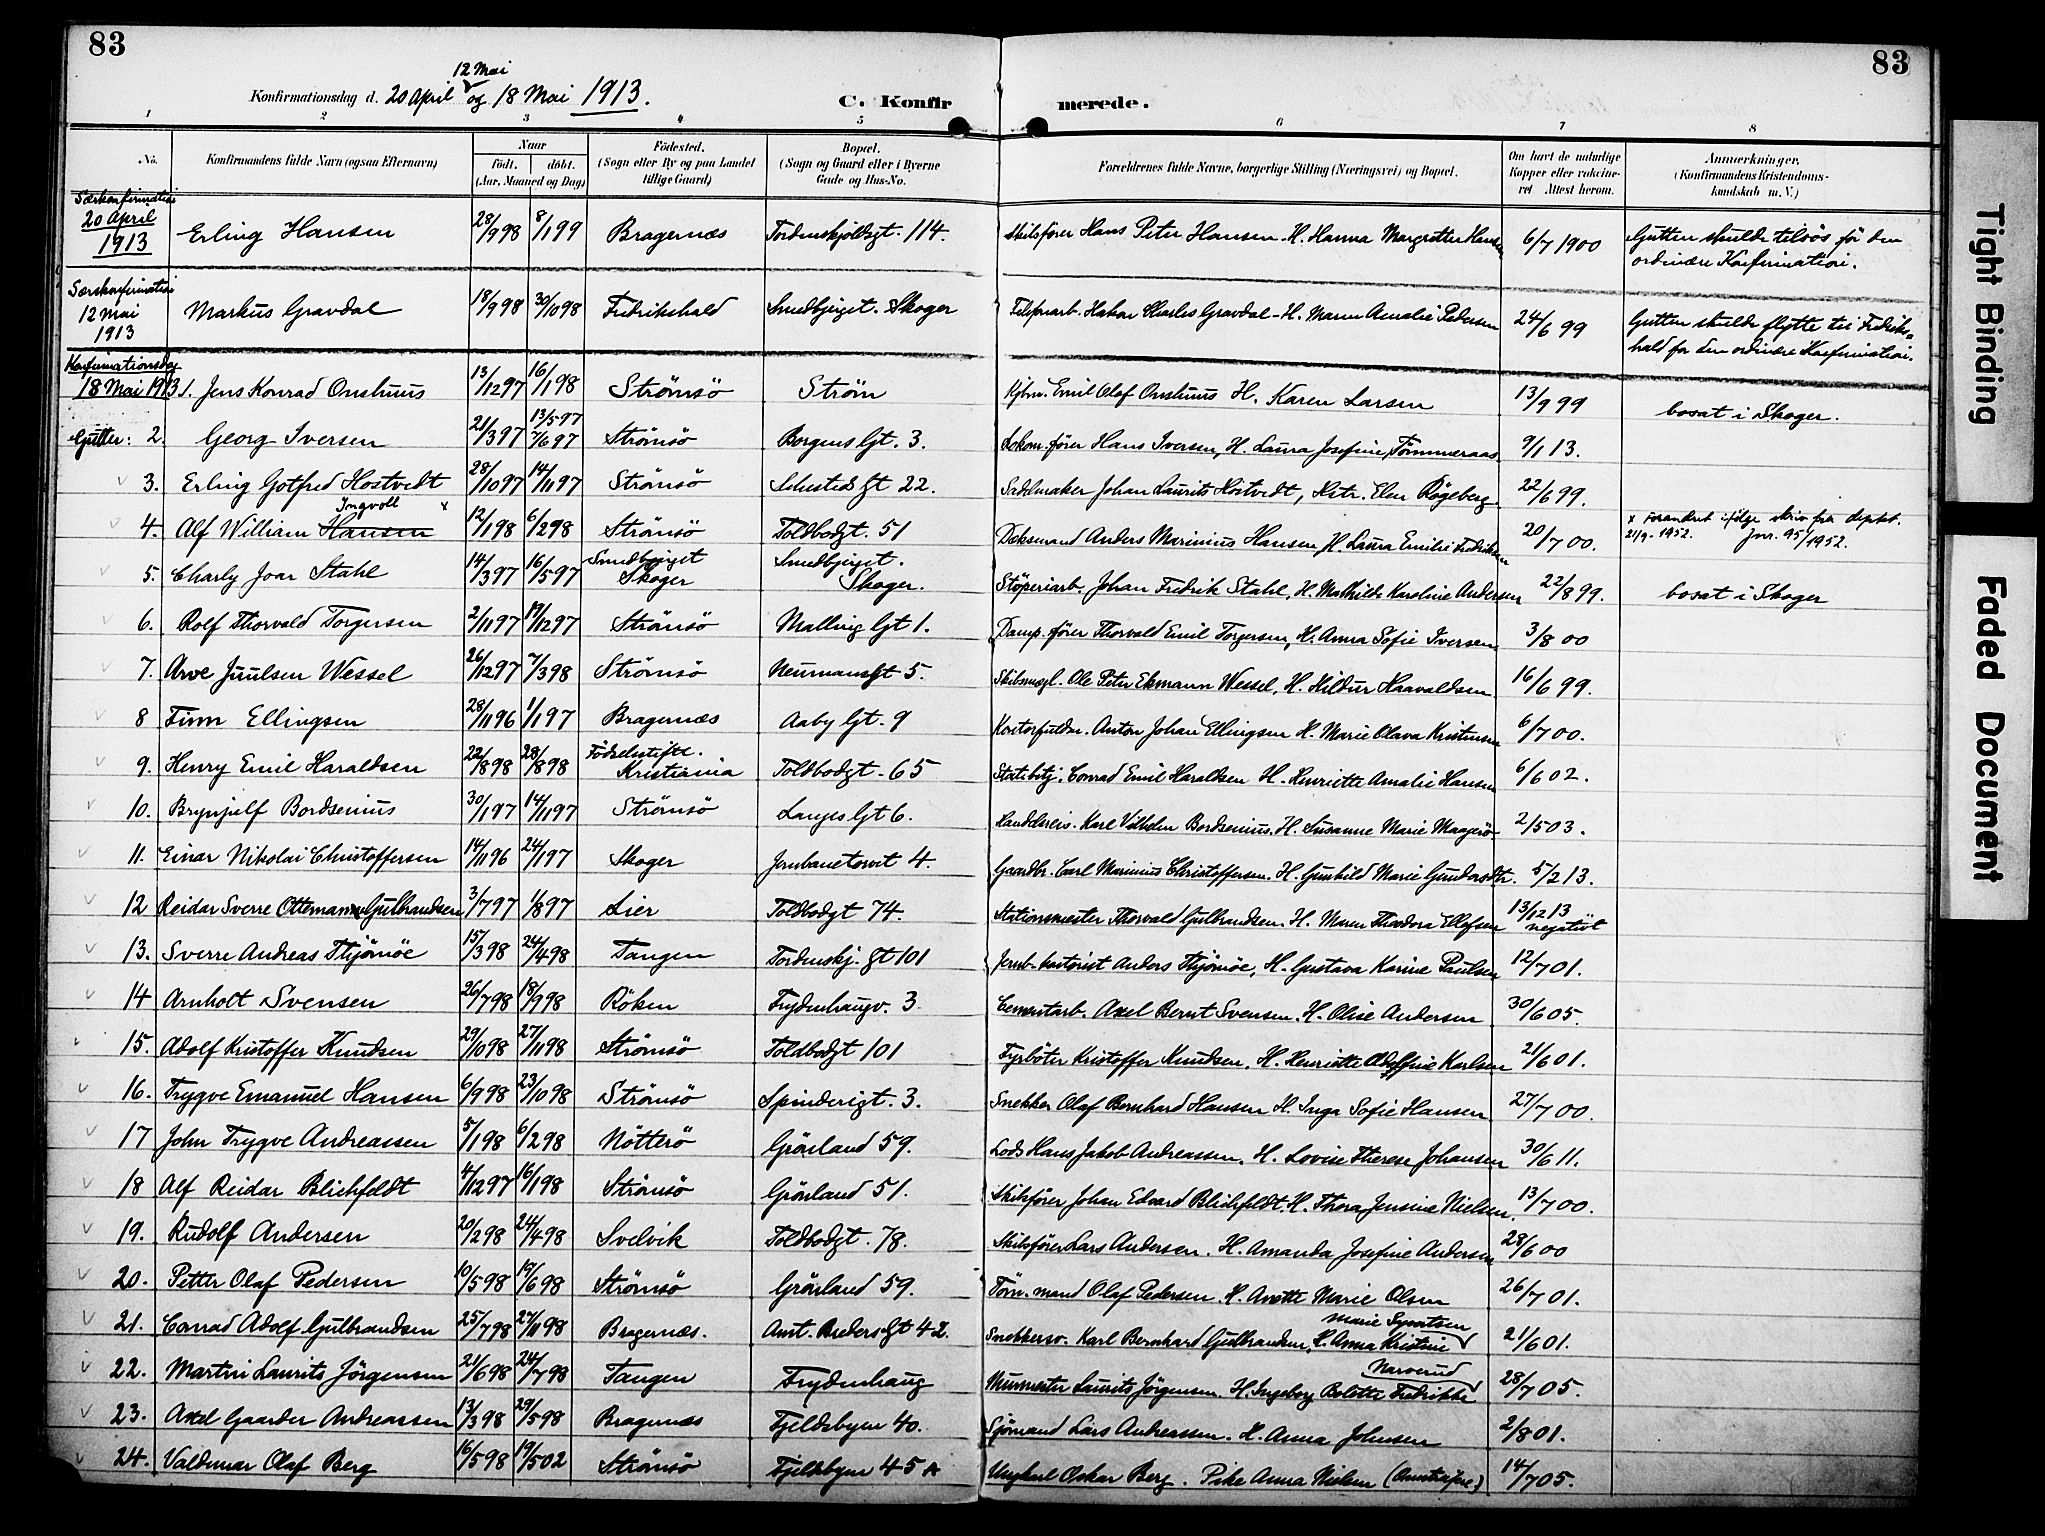 83
83
12 Mai
Konfirmationsdag d. 20 April og 18 Mai 1913.
C. Konfirmerede.
1 2 3 4 5 6 7 8
No.
Konfirmandens fulde Navn (ogsaa Efternavn)
Naar
født. døbt.
(Aar, Maaned og Dag)
Fødested.
(Sogn eller By og paa Landet
tillige Gaard)
Bopæl.
(Sogn og Gaard eller i Byerne
Gade og Hus-No.
Forældrenes fulde Navne, borgerlige Stilling (Næringsvei) og Bopæl.
Om havt de naturlige
Kopper eller vakcine-
ret Attest herom.
Anmerkninger.
(Konfirmandens Kristendoms-
kundskab m. V.)
Særkonfirmation
20 April
1913
Erling Hansen 28/9 98 8/1 99 Bragernæs Tordenskjoldsgt. 114. Skibsfører Hans Peter Hansen. H. Hanna Margrethe Hansen 6/7 1900 Gutten skulde tilsøs før den
ordinære Konfirmation.
Særskonfirmation
12 Mai
1913
Markus Gravdal 18/9 98 30/10 98 Fredrikshald Smedbjerget. Skoger Hakon Charles Gravdal - H. Maren Amalie Pedersen 24/6 99 Gutten skulde flytte til Fredriks-
hald før den ordinære Konfirmation.
Konfirmationsdag
18 Mai 1913
1. Jens Konrad Onshuus 13/12 97 16/1 98 Strømsö Strøm Kjbm. Emil Olaf Onshuus H. Karen Larsen 13/9 99 bosat i Skoger.
Gutter: 2. Georg Iversen 21/3 97 13/5 97 7/6 97 Strömsö Borgens Gt. 3. Lokom.fører Hans Iversen, H. Laura Josefine Tömmeraas 9/1 13.
3. Erling Gotfred Hostvedt 28/10 97 14/11 97 Strömsö Schesteds Gt 22. Sadelmaker Johan Laurits Hostvedt, Hstr. Elen Rögeberg 22/6 99.
Ingvoll x
4. Alf William Hansen 12/1 98 6/2 98 Strömsö Toldbodgt. 51 Deksmand Anders Marinius Hansen, H. Laura Emilie Fredriksen 20/7 00. x Forandret ifølge skriv fra deptet.
21/9-1952. jnr. 95/1952.
5. Charly Joar Stahl 14/3 97 16/5 97 Smedbjerget
Skoger Smedbjerget.
Skoger. Støperiarb. Johan Fredrik Stahl, H. Mathilde Karoline Andersen 22/8 99. bosat i Skoger
6. Rolf Thorvald Torgersen 2/11 97 19/12 97 Strömsö Malling Gt 1. Damp.fører Thorvald Emil Torgersen, H. Anna Sofie Iversen 3/8 00
7. Arve Juulsen Wessel 26/12 97 7/3 98 Strömsö Neumansgt 5. Skibsmægl. Ole Peter Ekmann Wessel, H. Hildur Haavaldsen 16/6 99.
8 Finn Ellingsen 28/11 96 1/1 97 Bragernæs Aaby Gt. 9 Kontorfuldm. Anton Johan Ellingsen H. Marie Olava Kristensen 6/7 00.
9. Henry Emil Haraldsen 22/8 98 28/8 98 Fødselsstift.
Kristiania Toldbodgt. 65 Statsbetj. Conrad Emil Haraldsen H. Henriette Amalie Hansen 6/6 02.
10. Brynjulf Bordsenius 30/1 97 14/11 97 Strömsö Langes Gt 6. Handelsreis. Karl Vilhelm Bordsenius. H. Susanne Marie Maagerö 2/5 03.
11. Einar Nikolai Christoffersen 14/11 96 24/1 97 Skoger Jernbanetorvet 4. Gaardbr. Carl Marinius Christoffersen. H. Gunhild Marie Gundersdtr. 5/2 13.
12 Reidar Sverre Ottemann Gulbrandsen 3/7 97 1/8 97 Lier Toldbodgt 74. Stationsmester Thorvald Gulbrandsen. H. Maren Theodora Ellefsen 13/12 13
negativt
13. Sverre Andreas Thjömöe 15/3 98 24/4 98 Tangen Tordenskj. Gt 101 Jernb. kontorist Anders Thjömöe, H. Gustava Karine Paulsen 12/7 01.
14 Arnholt Svensen 26/7 98 18/9 98 Röken Frydenhaugv. 3. Cementarb. Axel Bernt Svensen. H. Olise Andersen 30/6 05.
15. Adolf Kristoffer Knudsen 29/10 98 27/11 98 Strömsö Toldbodgt 101 Fyrböter Kristoffer Knudsen, H. Henriette Adolfine Karlsen 21/6 01.
16. Trygve Emanuel Hansen 6/9 98 23/10 98 Strömsö Spinderigt. 3. Snekker Olaf Bernhard Hansen H. Inga Sofie Hansen 27/7 00.
17 John Trygve Andreassen 5/1 98 6/2 98 Nötterö Grönland 59. Lods Hans Jakob Andreassen. H. Lovise Therese Johansen 30/6 11.
18 Alf Reidar Blichfeldt 4/12 97 16/1 98 Strömsö Grönland 51. Skibsfører Johan Edvard Blichfeldt. H. Thora Jensine Nielsen. 13/7 00.
19. Rudolf Andersen 20/2 98 24/4 98 Svelvik Toldbodgt. 78. Skibsfører Lars Andersen. H. Amanda Josefine Andersen 28/6 00
20. Petter Olaf Pedersen 10/5 98 19/6 98 Strömsö Grönland 59. Töm.mand Olaf Pedersen. H. Anette Marie Olsen 26/7 01.
21. Conrad Adolf Gulbrandsen 25/7 98 27/11 98 Bragernæs. Amt. Gt 42. Snekkersv. Karl Bernhard Gulbrandsen, H. Anna Kristine Marie Syvertsen 21/6 01.
22. Martin Laurits Jörgensen 21/6 98 24/7 98 Tangen Frydenhaug Murmester Laurits Jörgensen. H. Ingeborg Bolette Fredrikke Narverud 28/7 05.
23. Axel Gaarder Andreassen 13/3 98 29/5 98 Bragernæs Fjeldsbyen 40. Sjömand Lars Andreassen. H. Anna Johnsen 2/8 01.
24. Valdemar Olaf Berg 16/5 98 19/5 02 Strömsö Fjeldsbyen 45 A Ungkarl Oskar Berg. Pike Anna Nielsen 14/7 05.
Tight Binding
Faded Document